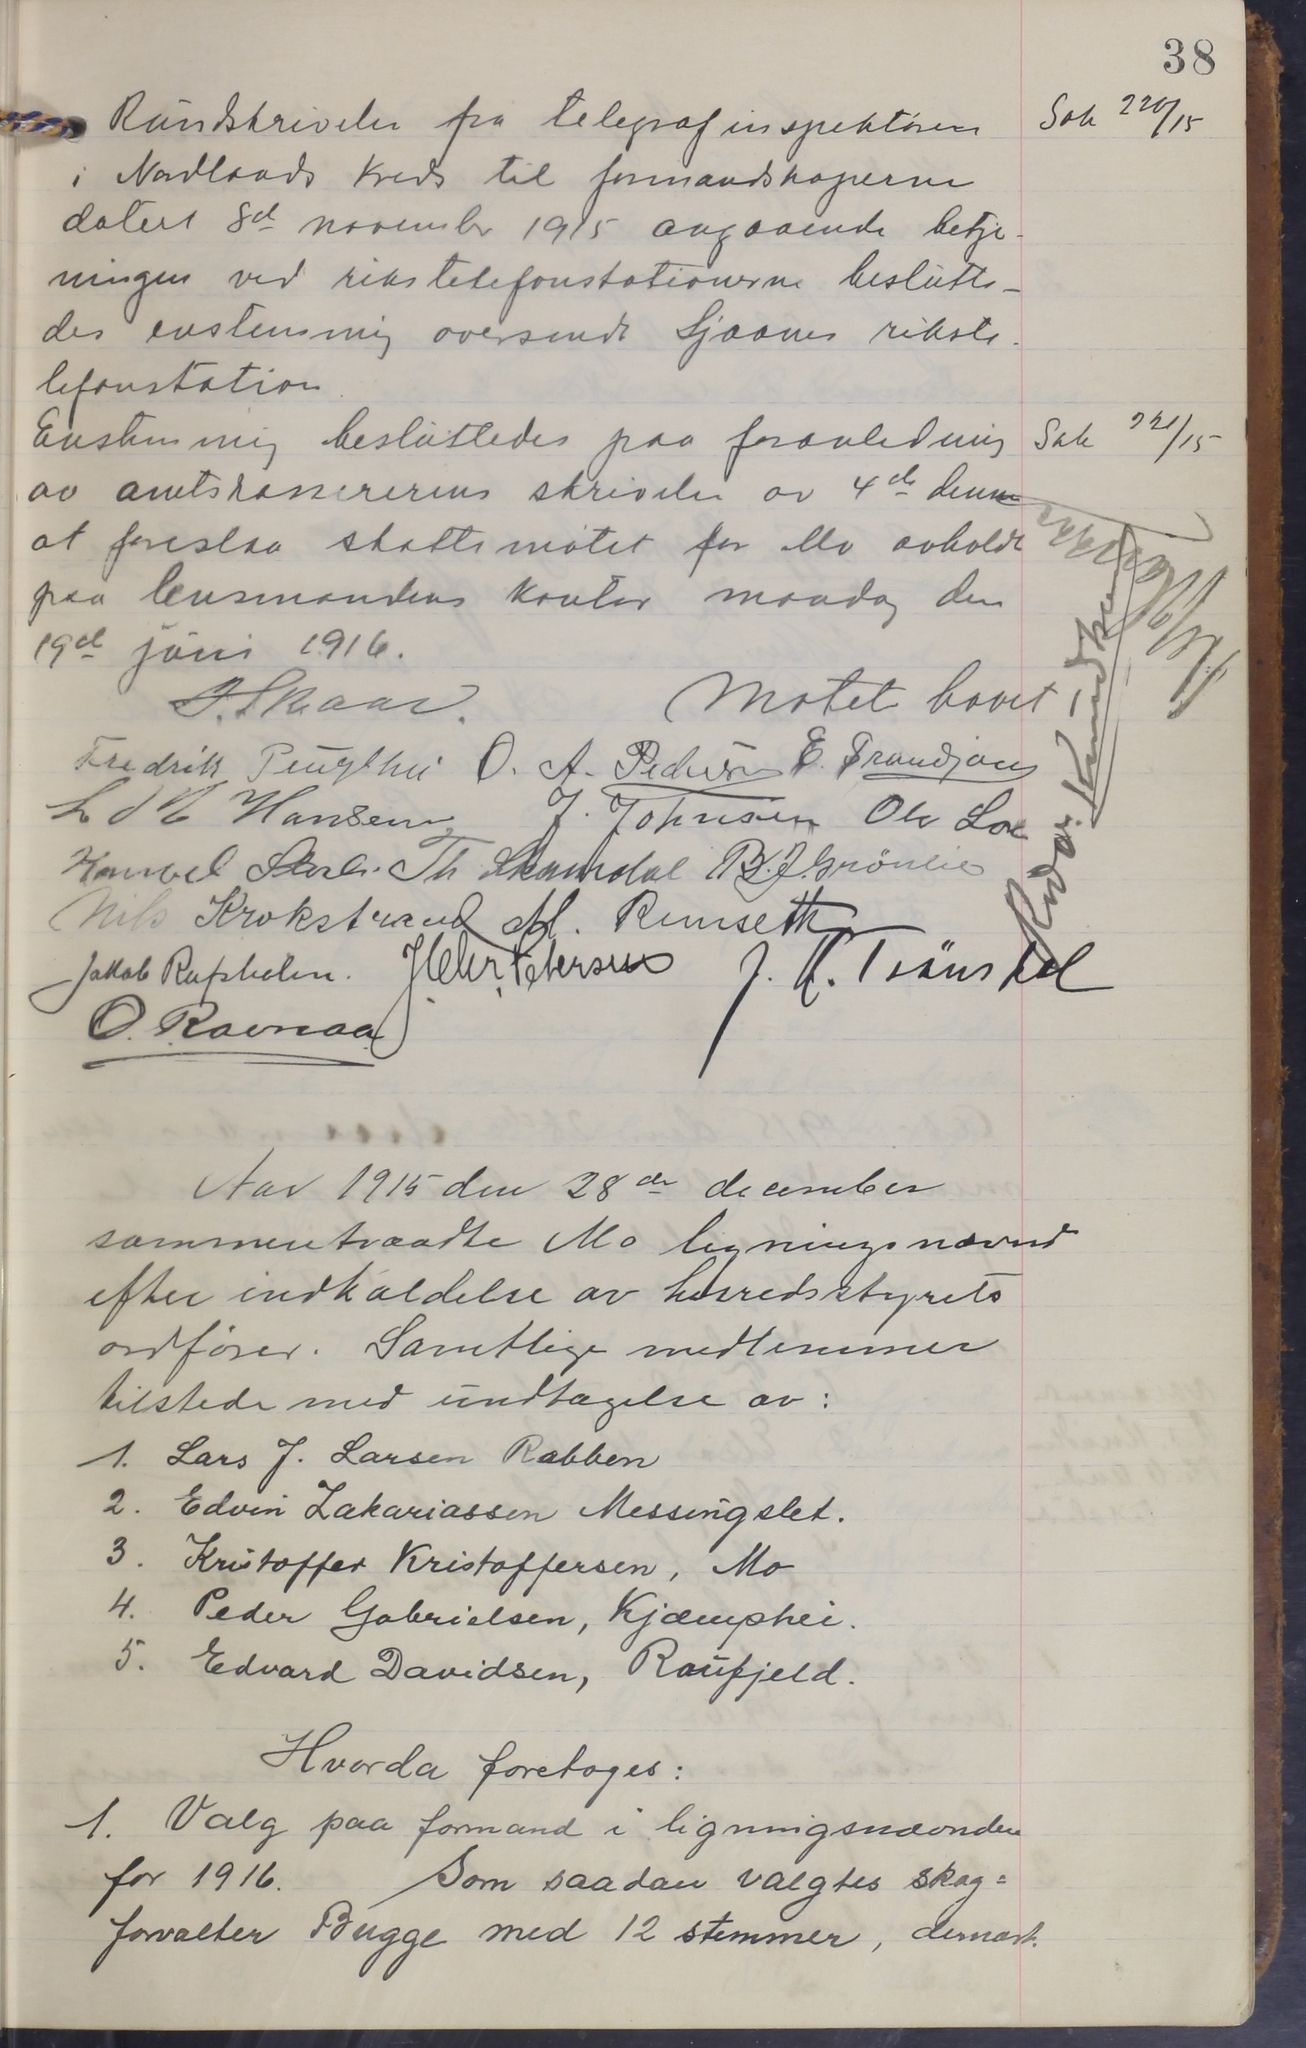 38
Rundskrivelse fra telegrafinspektøren Sak 220/15
i Nordlands kreds til formandskaperne
datert 8de november 1915 angaaende betje-
ningen ved rikstelefonstationerne beslutte-
des enstemmig oversendt Sjaanes rikste-
lefonstation
Enstemmig besluttedes paa foranledning Sak 221/15
av amtskassererens skrivelse av 4de denne
at foreslaa skattemötet for Mo avholdt
paa lensmandens kontor mandag den
19de juni 1916.
Mötet hævet
J. Skaar.
Fredrik O. A. Pedersen E. Trandjam
L d M Hansen J. Johnsen Ole
Th Skamdal B. J. Grönlie
Nils Krokstrand M. Rimseth
Jakob Rufsholm. Petersen J. A. Trånskel
O. Ravnaa
Aar 1915 den 28de december
sammentraadte Mo ligningsnævnd
efter indkaldelse av herredsstyrets
ordfører. Samtlige medlemmer
tilstede med undtagelse av:
1. Lars J. Larsen Rabben
2. Edvin Zakariassen Messingslet.
3. Kristoffer Kristoffersen, Mo
4. Peder Gabrielsen, Kjæmphei.
5. Edvard Davidsen, Raufjeld.
Hvorda foretoges:
1. Valg paa formand i ligningsnævnden
for 1916. Som saadan valgtes skog=
forvalter Bugge med 12 stemmer, dernæst